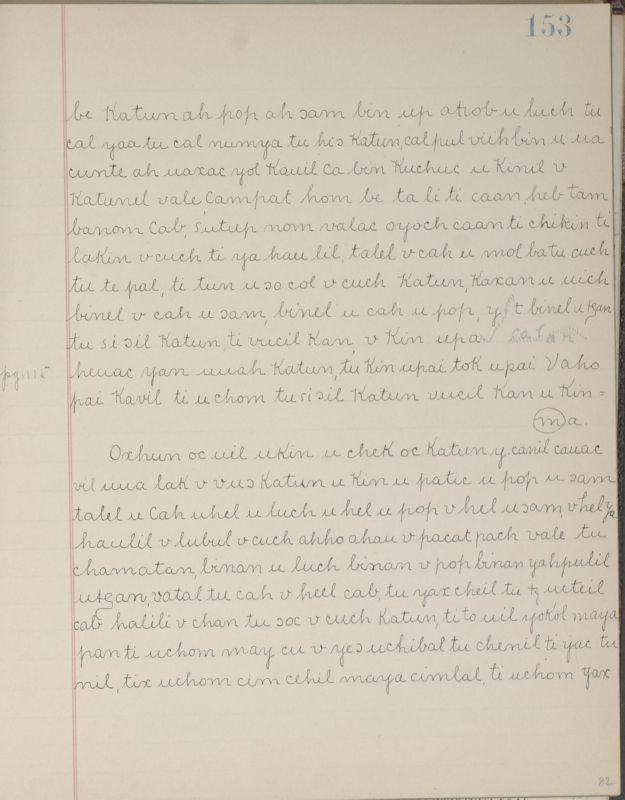 153
be Katun ah pop ah sam bin up ahob u luch tu
cal yaa tu cal numya tu his Katun, cal pul viih bin u ua
cunte ah uaxac yol Kauil Ca bin Kuchuc u Kinil v
Katunel vale, Campat hom be ta li ti caan, heb tam
banom Cab, sutup nom valac oyoch caan ti chikin ti
lakin v cuch ti ya hau lil, talel v cah u mol batu cuch
tu te pal, ti tun u so col v cuch Katun, Kaxan u uich
binel v cah u sam, binel u cah u pop, y t binel u tzan
tu si sil Katun, ti vucil Kan, v Kin upa
heuac yan uuah Katun, tu Kin upai tok upai Vaho
pg. 115
pai Kavil ti uchom tu si sil Katun vucil Kan u Kin =
ma.
Oxhun oc uil u Kin u chek oc Katun y. canil cauac
vil uua lak v vus Katun u Kin u patic u pop u sam
talel u Cah u hel u luch u hel u pop v hel u sam, v hel ya
haulil v lubul v cuch ahho ahau v pacat pach vale tu
chamatan, binan u luch binan v pop binan yahpulil
u tzan, vatal tu cah v heel cab, tu yax cheil tu tz uiteil
cab halili v chan tu soc v cuch Katun, ti to uil yokol maya
pan ti uchom may cu v yes uchibal tu chenil ti yac tu
nil, tix uchom cim cehil maya cimlal, ti uchom yax
82